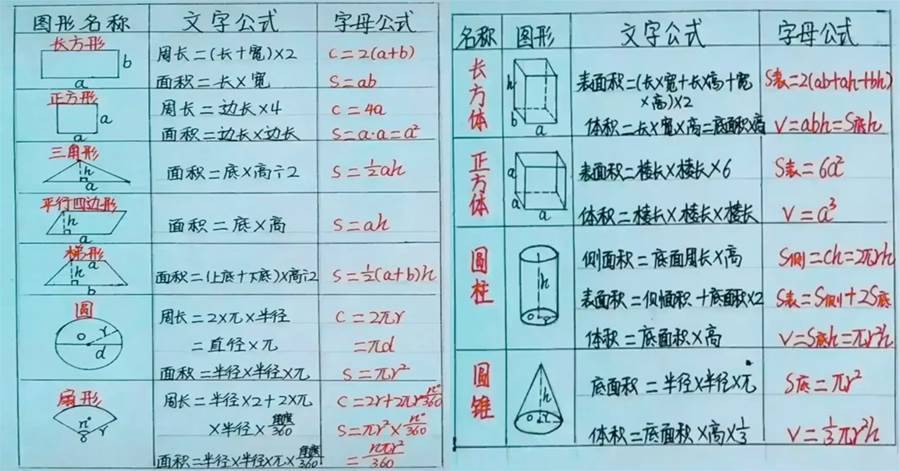 图形名称 文字公式 字母公式
长方形
b
a
周长=(长+宽)×2 C=2(a+b)
面积=长×宽 S=ab
正方形
a
a
周长=边长×4 C=4a
面积=边长×边长 S=a·a=a²
三角形
h
a
面积=底×高÷2 S=½ah
平行四边形
h
a
面积=底×高 S=ah
梯形
a
h
b
面积=(上底+下底)×高÷2 S=½(a+b)h
圆
o r
d
周长=2×π×半径 C=2πr
=直径×π =πd
面积=半径×半径×π S=πr²
扇形
n°
r
周长=半径×2+2×π C=2r+2πr n°/360
×半径×角度/360 S=πr²×n°/360
面积=半径×半径×π×角度/360 =nπr²/360
名称 图形 文字公式 字母公式
长方体
h
b
a
表面积=(长×宽+长×高+宽 S表=2(ab+ah+bh)
×高)×2
体积=长×宽×高=底面积×高 V=abh=S底h
正方体
a
a
a
表面积=棱长×棱长×6 S表=6a²
体积=棱长×棱长×棱长 V=a³
圆柱
h
o r
侧面积=底面周长×高 S侧=Ch=2πrh
表面积=侧面积+底面积×2 S表=S侧+2S底
体积=底面积×高 V=S底h=πr²h
圆锥
h
o r
底面积=半径×半径×π S底=πr²
体积=底面积×高×⅓ V=⅓πr²h